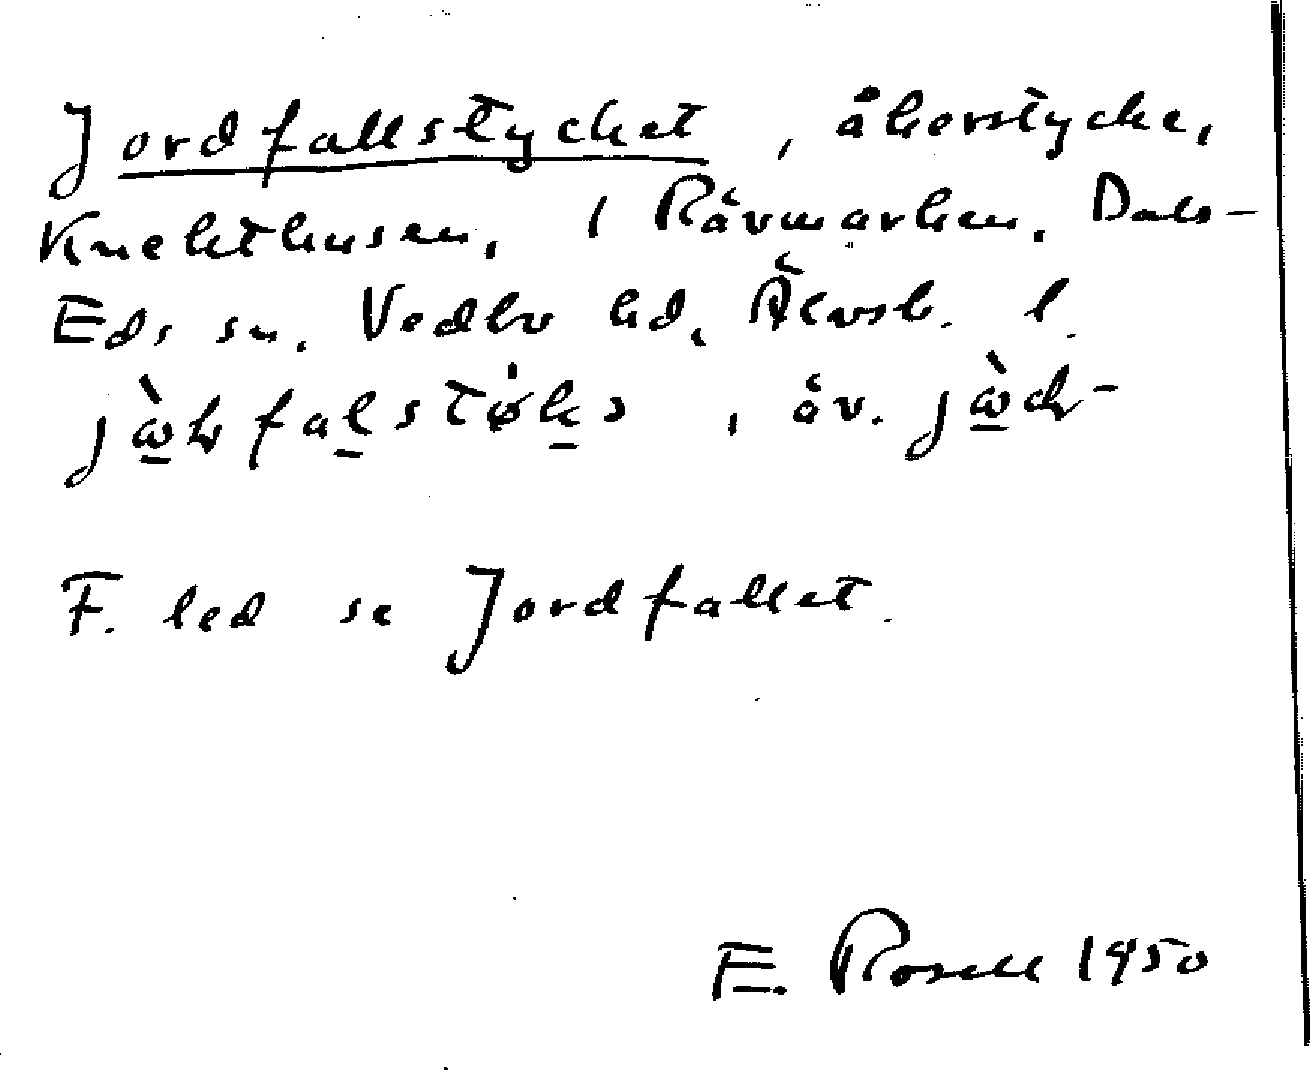 Jordfallstycket, åkerstycke,
Knekthusen, 1 Rävmarken, Dals-
Eds sn. Vedbo hd, Älvsb. l.
äv.
F. led se Jordfallet.
E. Rosell 1950